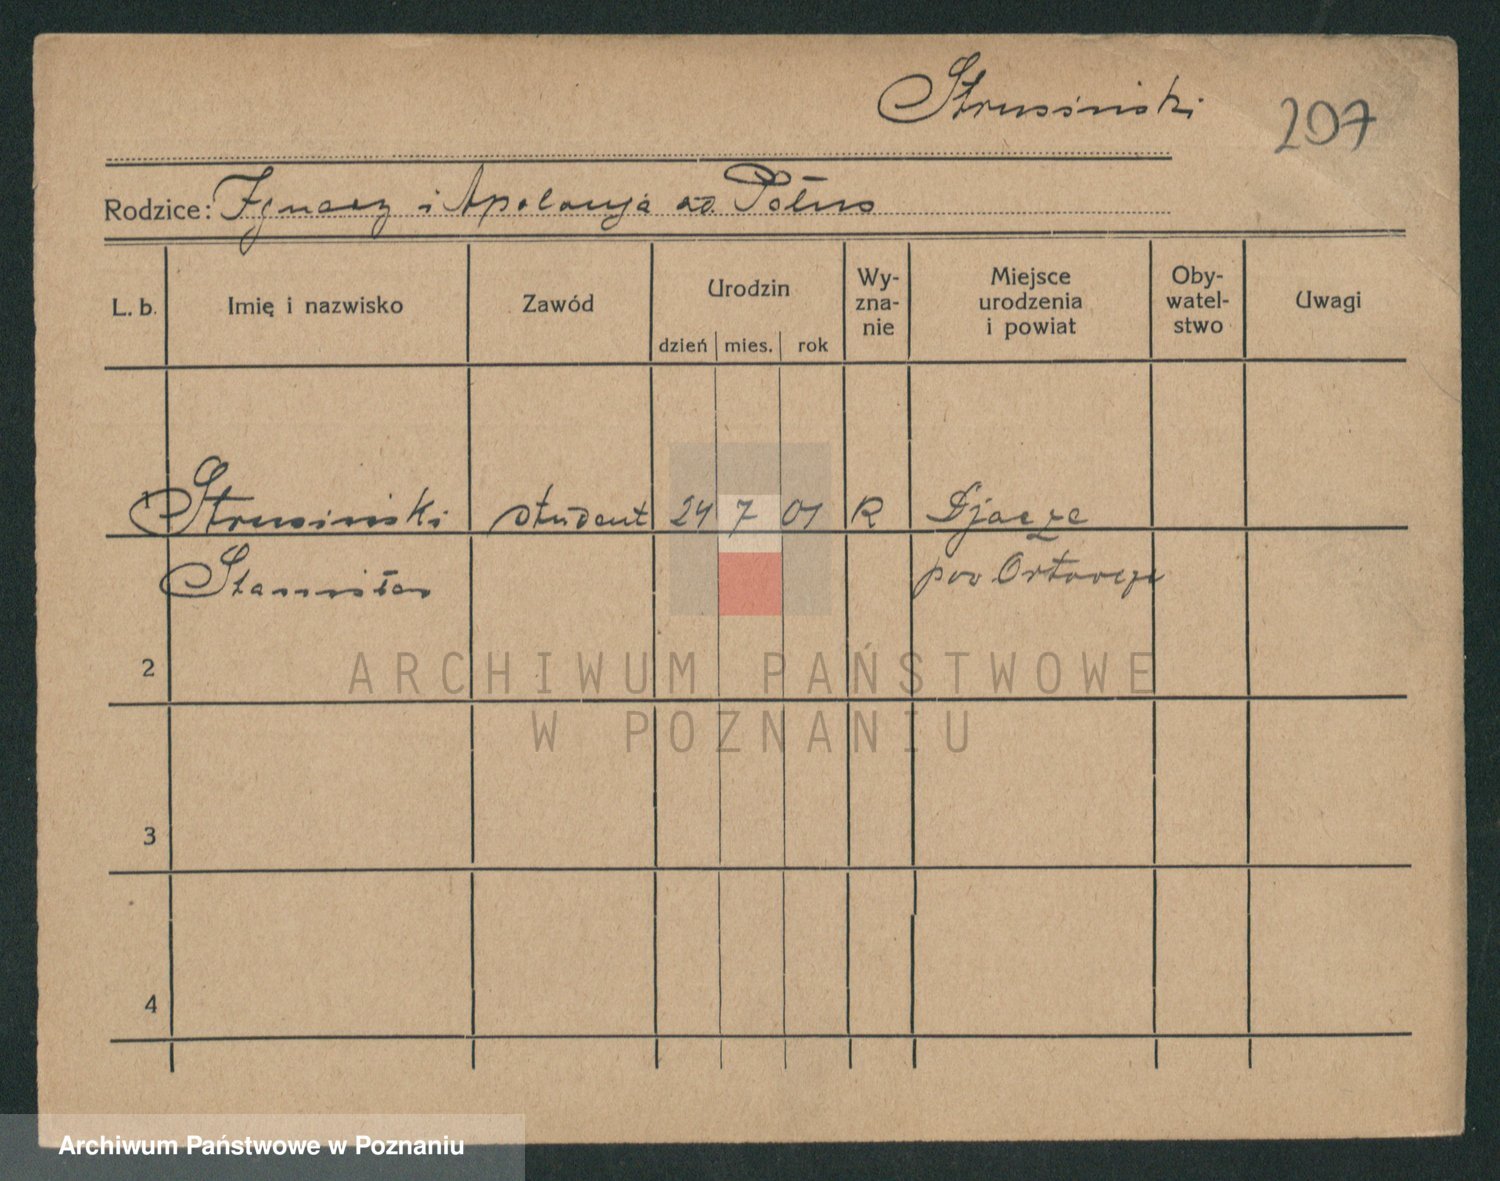 Strusiński
207
Rodzice: Ignacy i Apolonja
L. b. Imię i nazwisko Zawód Urodzin dzień mies. rok Wy-zna-nie Miejsce urodzenia i powiat Oby-watel-stwo Uwagi
1 Strusiński student 24 7 01 R
Stanisław pow
2
ARCHIWUM PAŃSTWOWE
W POZNANIU
3
4
Archiwum Państwowe w Poznaniu